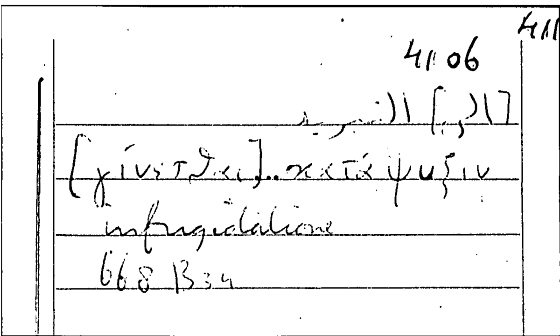 411
41 06
التبريد
[γίνεσθαι].. κατάψυξιν
infrigidatione
668 B34